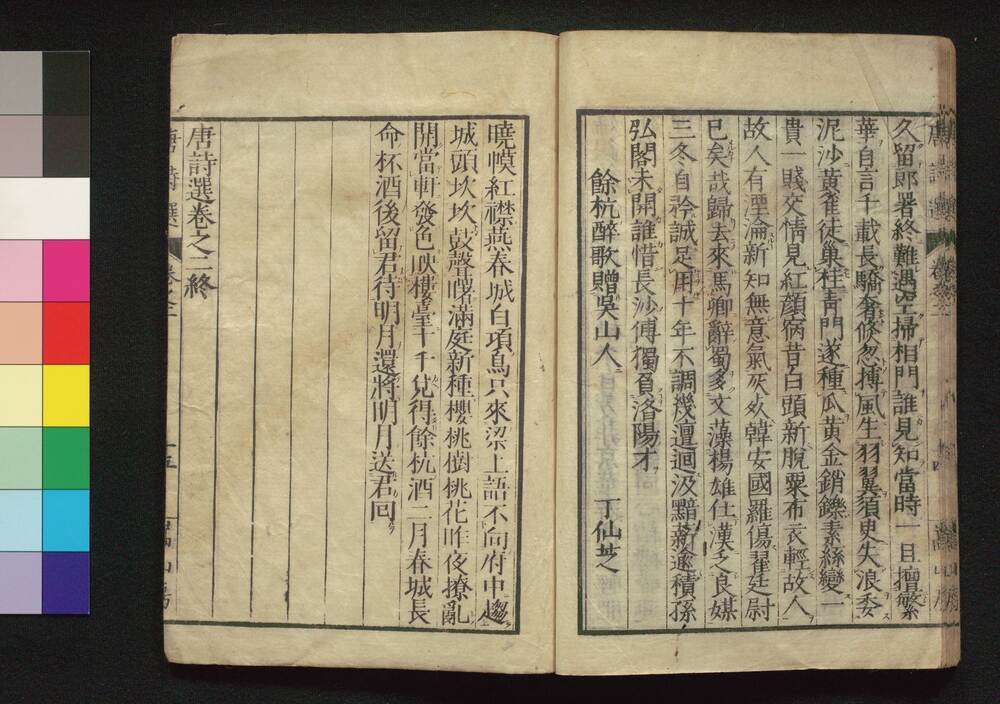 久留郎署終難遇空掃相門誰見知當時一旦擅繁
華自言千載長驕奢倐忽摶風生羽翼須臾失浪委
泥沙黃雀徒巢桂青門遂種瓜黃金銷鑠素絲變一
貴一賤交情見紅顏宿昔白頭新脫粟布衣輕故人
故人有湮淪新知無意氣灰死韓安國羅傷翟廷尉
已矣哉歸去來馬卿辭蜀多文藻楊雄仕漢乏良媒
三冬自矜誠足用十年不調幾邅迴汲黯薪逾積孫
弘閣未開誰惜長沙傅獨負洛陽才
餘杭醉歌贈吳山人 丁仙芝
曉幙紅襟燕春城白項烏只來梁上語不向府中趨
城頭坎坎鼓聲曙滿庭新種櫻桃樹桃花昨夜撩亂
開當軒發色映樓臺十千兌得餘杭酒二月春城長
命杯酒後留君待明月還將明月送君回
唐詩選卷之二終
唐詩選 卷之二 十五